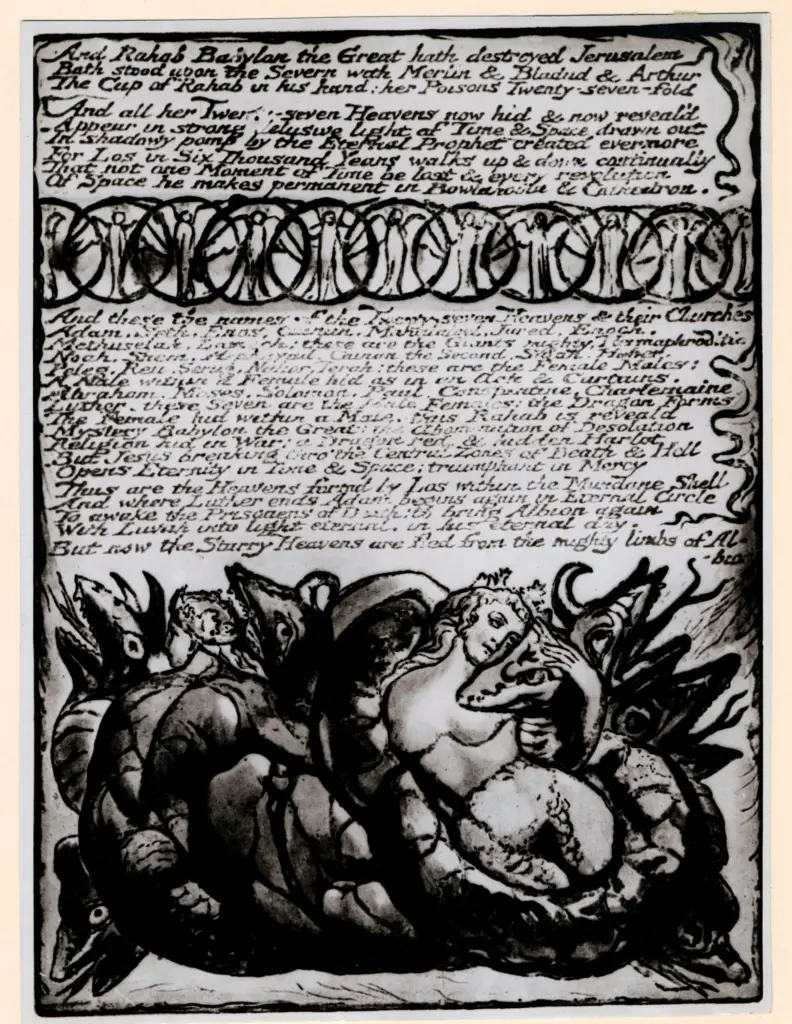 And Rahab Babylon the Great hath destroyed Jerusalem
Bath stood upon the Severn with Merlin & Bladud & Arthur
The Cup of Rahab in his hand: her Poisons Twenty-seven-fold
And all her Twenty-seven Heavens now hid & now reveal'd
Appear in strong delusive light of Time & Space drawn out
In shadowy pomp by the Eternal Prophet created evermore
For Los in Six Thousand Years walks up & down continually
That not one Moment of Time be lost & every revolution
Of Space he makes permanent in Bowlahoola & Cathedron.
And these the names of the Twenty-seven Heavens & their Churches
Adam, Seth, Enos, Cainan, Mahalaleel, Jared, Enoch,
Methuselah, Lamech: these are the Giants mighty, Hermaphroditic
Noah, Shem, Arphaxad, Cainan the Second, Salah, Heber,
Peleg, Reu, Serug, Nahor, Terah: these are the Female Males:
A Male within a Female hid as in an Ark & Curtains.
Abraham, Moses, Solomon, Paul, Constantine, Charlemaine,
Luther, these Seven are the Male Females: the Dragon Forms
The Female hid within a Male: thus Rahab is reveald
Mystery Babylon the Great: the Abomination of Desolation
Religion hid in War: a Dragon red, & hidden Harlot
But Jesus breaking thro' the Central Zones of Death & Hell
Opens Eternity in Time & Space; triumphant in Mercy
Thus are the Heavens formd by Los within the Mundane Shell
And where Luther ends Adam begins again in Eternal Circle
To awake the Prisoners of Death; to bring Albion again
With Luvah into light eternal, in his eternal day.
But now the Starry Heavens are fled from the mighty limbs of Al-
-bion